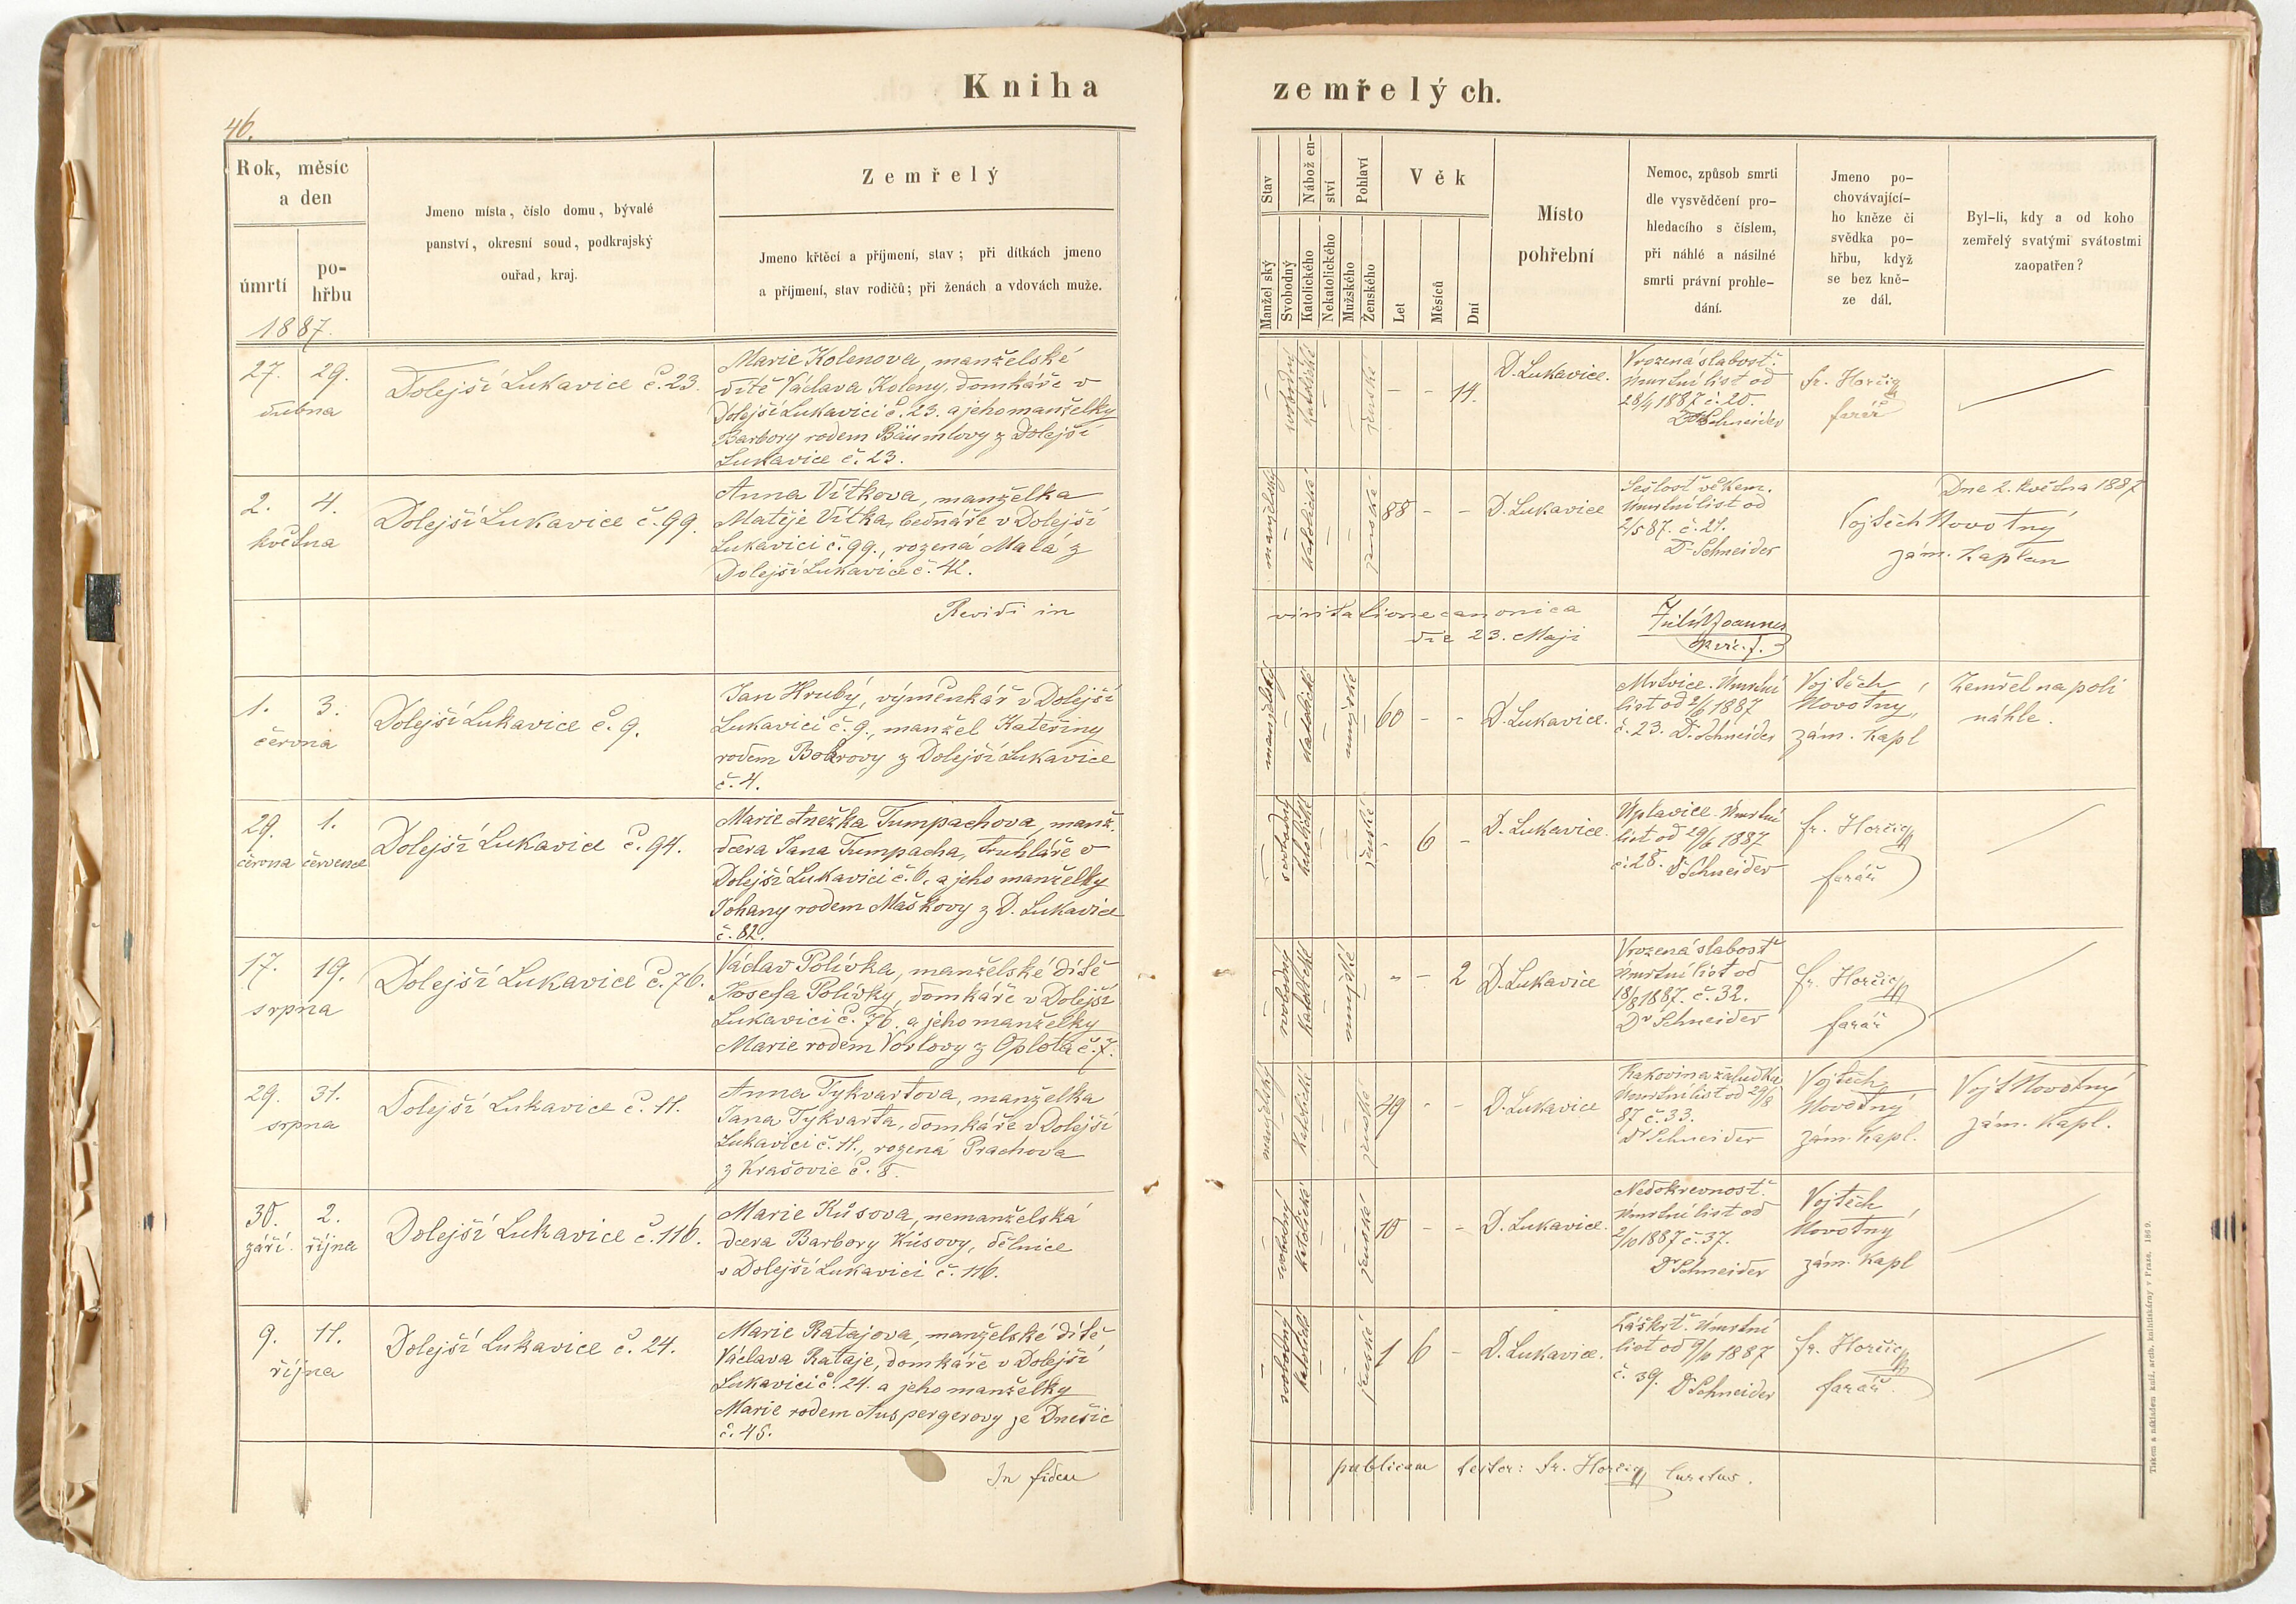 Kniha zemřelých.
46.
Rok, měsíc
a den
úmrtí
po-
hřbu
1887.
Jmeno místa, číslo domu, bývalé
panství, okresní soud, podkrajský
ouřad, kraj.
Zemřelý
Jmeno křtěcí a příjmení, stav; při dítkách jmeno
a příjmení, stav rodičů; při ženách a vdovách muže.
Stav
Manželský
Svobodný
Nábožen-
ství
Katolického
Nekatolického
Pohlaví
Mužského
Ženského
Věk
Let
Měsíců
Dní
Místo
pohřební
Nemoc, způsob smrti
dle vysvědčení pro-
hledacího s číslem,
při náhlé a násilné
smrti právní prohle-
dání.
Jmeno po-
chovávající-
ho kněze či
svědka po-
hřbu, když
se bez kně-
ze dál.
Byl-li, kdy a od koho
zemřelý svatými svátostmi
zaopatřen?
27. 29.
dubna
Dolejší Lukavice č. 23.
Marie Kolenova, manželské
dítě Václava Koleny, domkáře v
Dolejší Lukavici č. 23. a jeho manželky
Barbory rodem Bäumlovy z Dolejší
Lukavice č. 23.
– svobodný katolické – – ženské – – 14.
D. Lukavice.
Vrozená slabosť.
Úmrtní list od
28/4 1887 č. 20.
Dr Schneider
fr. Horčig
farář
2. 4.
května
Dolejší Lukavice č. 99.
Anna Vítkova, manželka
Matěje Vítka, bednáře v Dolejší
Lukavici č. 99., rozená Malá z
Dolejší Lukavice č. 42.
manželský – katolické – – ženské 88 – –
D. Lukavice
Sešlosť věkem.
Úmrtní list od
2/5 87. č. 21.
Dr Schneider
Dne 2. května 1887
Vojtěch Novotný
zám. kaplan
Revidi in visitatione canonica
die 23. Maji
Joannes
1. 3.
června
Dolejší Lukavice č. 9.
Jan Hrubý, výměnkář v Dolejší
Lukavici č. 9., manžel Kateřiny
rodem Bobrovy z Dolejší Lukavice
č. 4.
manželský – katolické – mužské – 60 – –
D. Lukavice.
Mrtvice. Úmrtní
list od 2/6 1887
č. 23. Dr. Schneider
Vojtěch
Novotný,
zám. kapl
Zemřel na poli
náhle.
29. 1.
června července
Dolejší Lukavice č. 94.
Marie Anežka Tumpachova, manž.
dcera Jana Tumpacha, truhláře v
Dolejší Lukavici č. 6. a jeho manželky
Johany rodem Maškovy z D. Lukavice
č. 82.
– svobodný katolické – – ženské – 6 –
D. Lukavice.
Úplavice. Úmrtní
list od 29/6 1887
č. 28. Dr Schneider
fr. Horčig
farář
17. 19.
srpna
Dolejší Lukavice č. 76.
Václav Polívka, manželské dítě
Josefa Polívky, domkáře v Dolejší
Lukavici č. 76. a jeho manželky
Marie rodem Vorlovy z Oplota č. 7.
– svobodný katolické – mužské – – – 2
D. Lukavice
Vrozená slabosť
Úmrtní list od
18/8 1887. č. 32.
Dr Schneider
fr. Horčig
farář
29. 31.
srpna
Dolejší Lukavice č. 11.
Anna Tykvartova, manželka
Jana Tykvarta, domkáře v Dolejší
Lukavici č. 11., rozená Prachova
z Krašovic č. 8.
manželský – katolické – – ženské 49 – –
D. Lukavice
Rakovina žaludka
Úmrtní list od 29/8
87 č. 33.
Dr Schneider
Vojtěch
Novotný
zám. kapl.
Vojt Novotný
zám. kapl.
30. 2.
září. října
Dolejší Lukavice č. 116.
Marie Kůsova, nemanželská
dcera Barbory Kůsovy, dělnice
v Dolejší Lukavici č. 116.
– svobodný katolické – – ženské 10 – –
D. Lukavice.
Nedokrevnosť.
Úmrtní list od
2/10 1887 č. 37.
Dr Schneider
Vojtěch
Novotný
zám. kapl
9. 11.
října
Dolejší Lukavice č. 24.
Marie Ratajova, manželské dítě
Václava Rataje, domkáře v Dolejší
Lukavici č. 24. a jeho manželky
Marie rodem Auspergerovy ze Dnešic
č. 45.
– svobodný katolické – – ženské 1 6 –
D. Lukavice.
Záškrt. Úmrtní
list od 9/10 1887
č. 39. Dr Schneider
fr. Horčig
farář.
In fidem publicam testor: fr. Horčig, Curatus.
Tiskem a nákladem kníž. arcib. knihtiskárny v Praze. 1869.